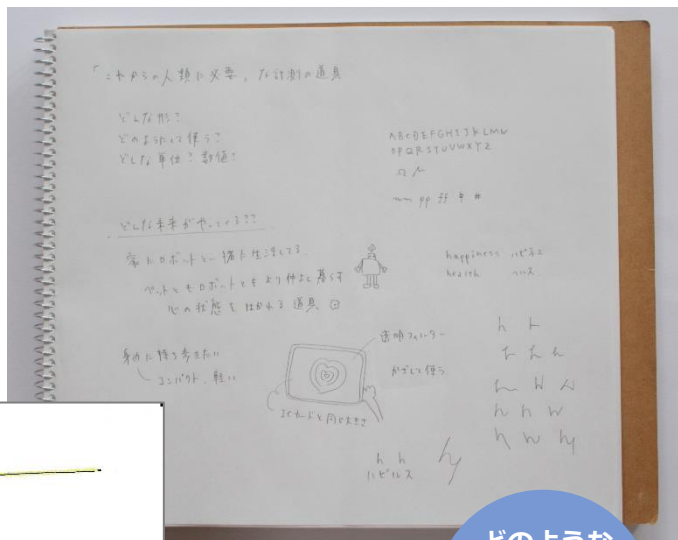 「これからの人類に必要」な計測の道具
どんな形?
どのようにして使う?
どんな単位?数値?
ABCDEFGHIJKLMN
OPQRSTUVWXYZ
pp ff # #
どんな未来がやってくる??
家にロボットと一緒に生活してる
ペットともロボットともより仲よく暮らす
心の状態を はかれる 道具
happiness ハピネス
health ヘルス
身近に持ち歩きたい
コンパクト、軽い
透明フィルター
かざして使う
ICカードと同じ大きさ
h h
ハピルス
hy
どのような